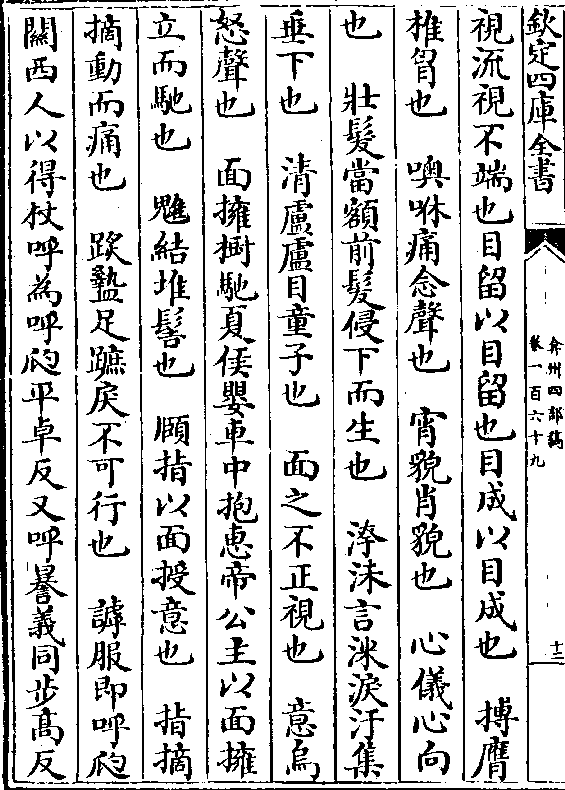 欽定四庫全書
弇州四部稿
卷一百六十九
十二
視流視不端也目留以目留也目成以目成也　搏膺
椎胷也　噢咻痛念聲也　宵貌肖貌也　心儀心向
也　壯髮當額前髮侵下而生也　洿沬言涕淚汙集
垂下也　清盧盧目童子也　面之不正視也　意烏
怒聲也　面擁樹馳夏侯嬰車中抱惠帝公主以面擁
立而馳也　魋結堆髻也　頤指以面授意也　指摘
摘動而痛也　蹳盭足蹠戾不可行也　謼服即呼㕰
關西人以得杖呼為呼㕰平卓反又呼謈義同步髙反